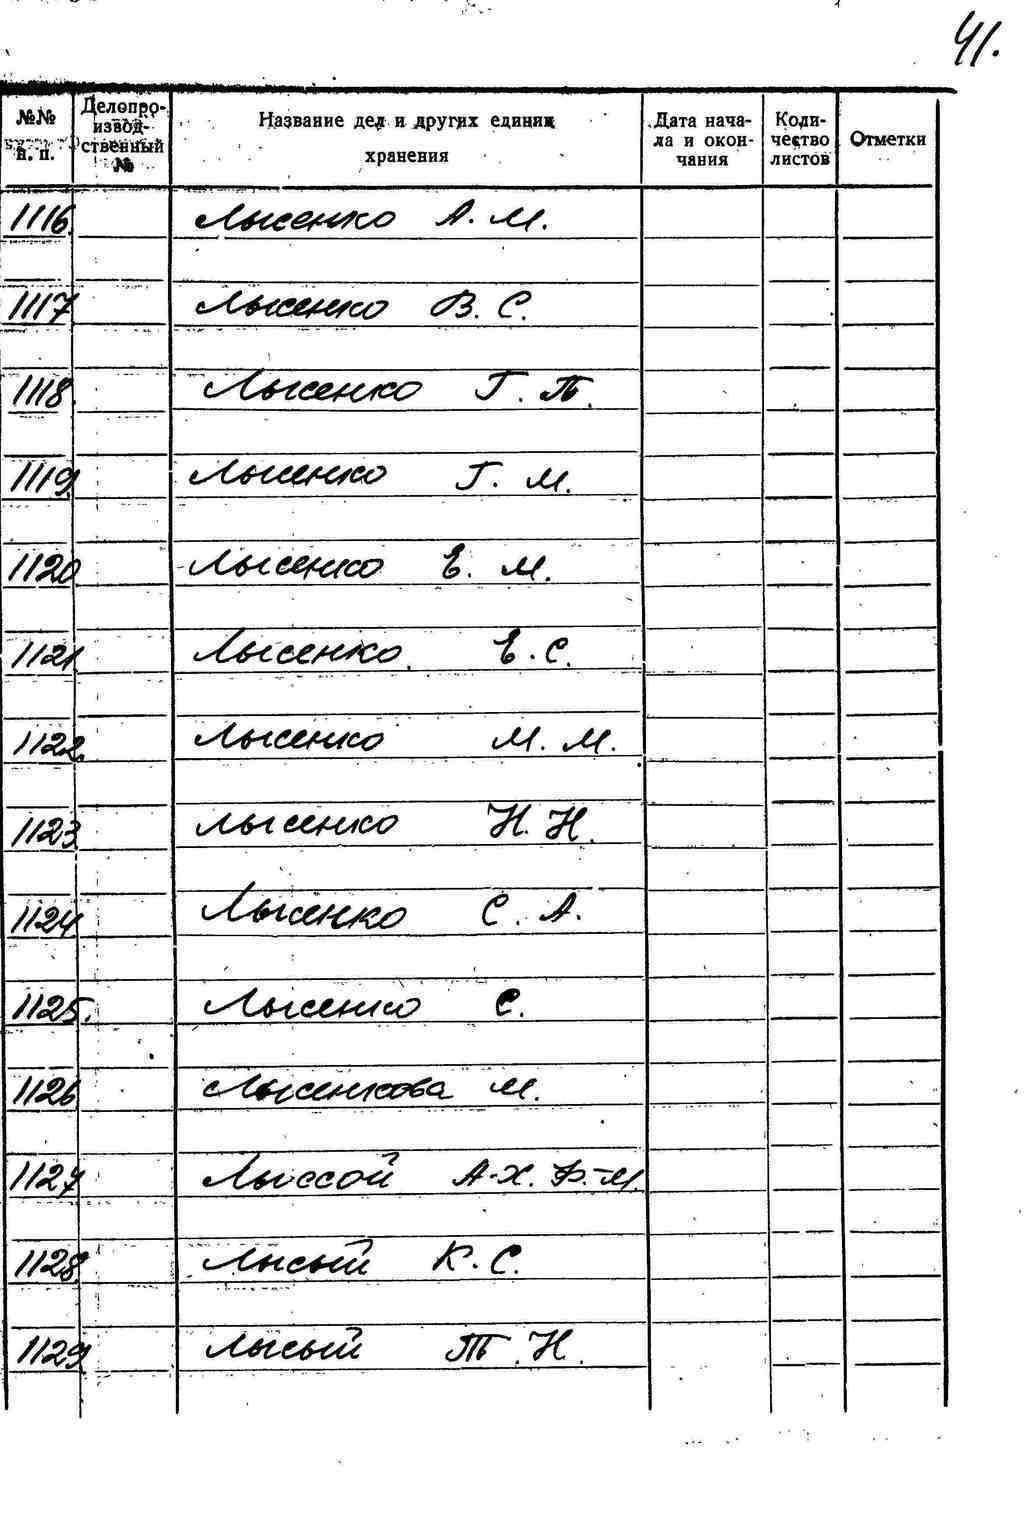 41.
№№ п. п. Делопроизвод- ственный № Название дел и других единиц хранения Дата нача- ла и окон- чания Коли- чество листов Отметки
1116. Лысенко А. М.
1117 Лысенко В. С.
1118. Лысенко Г. П.
1119. Лысенко Г. М.
1120 Лысенко Е. М.
1121. Лысенко Е. С.
1122. Лысенко М. М.
1123 Лысенко Н. Н.
1124 Лысенко С. А.
1125. Лысенко С.
1126 Лысенкова М.
1127 Лыссой А-Х. Ф.-М.
1128 Лысый К. С.
1129 Лысый Т. Н.